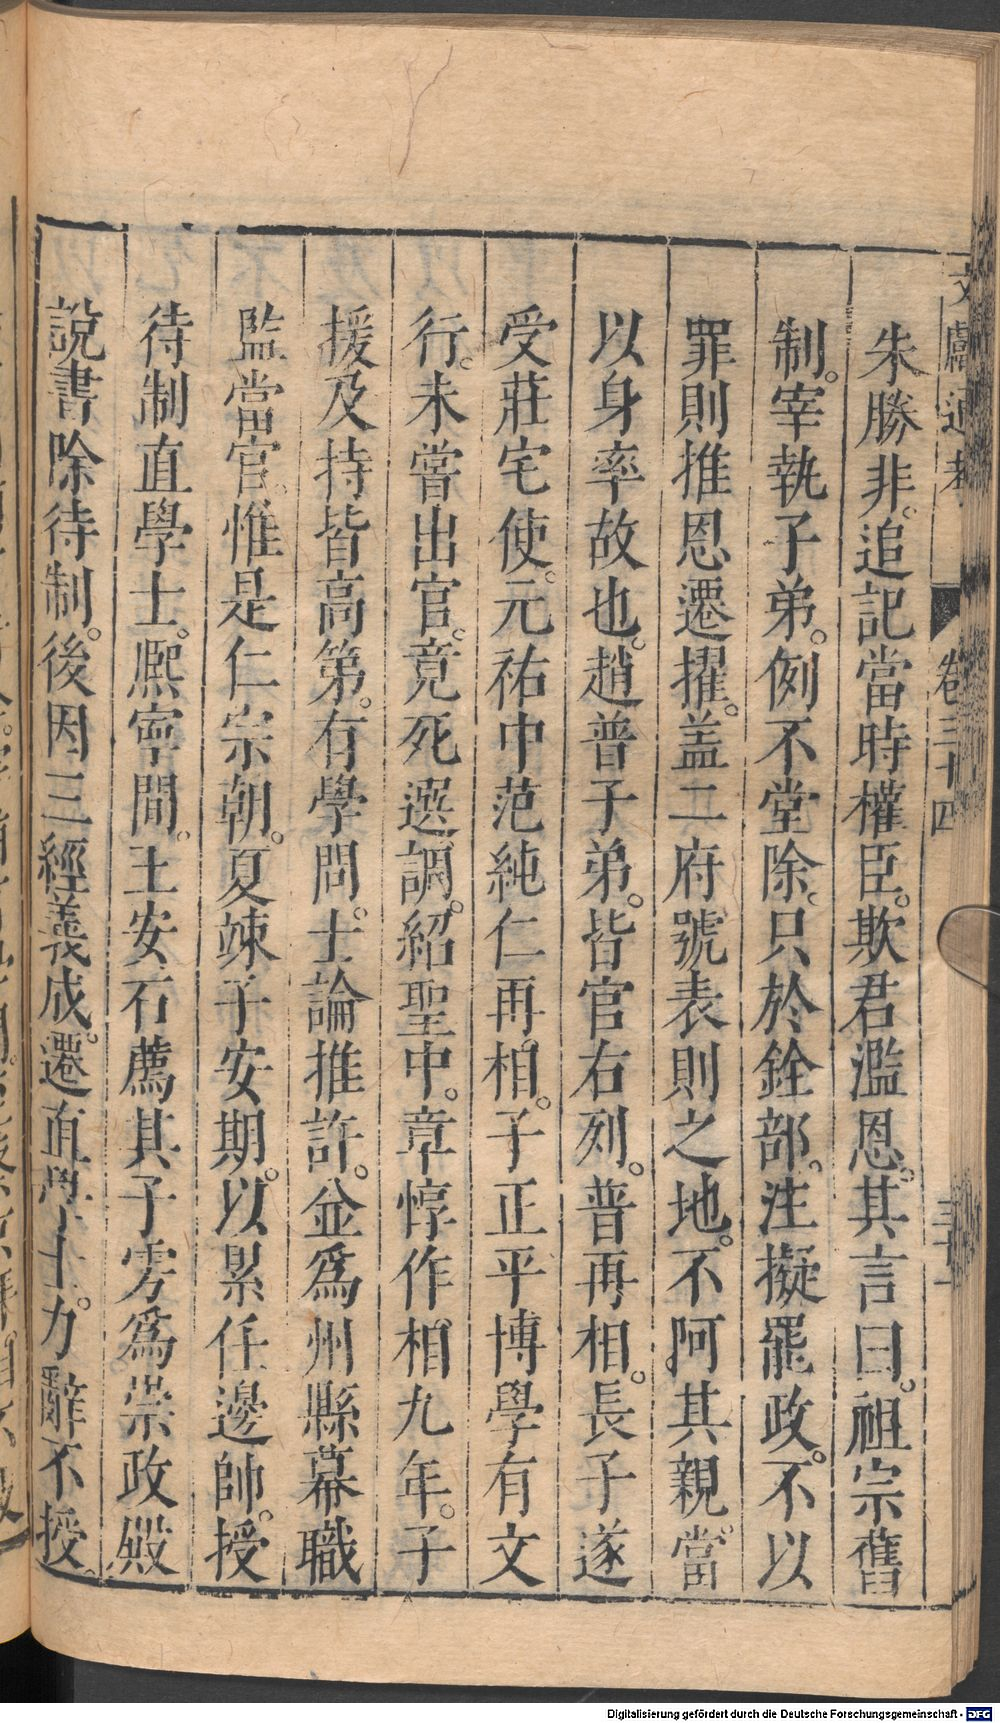 文獻通考 卷三十四
朱勝非。追記當時權臣。欺君濫恩。其言曰。祖宗舊
制。宰執子弟。例不堂除。只於銓部。注擬罷政。不以
罪則推恩遷擢。盖二府號表則之地。不阿其親。當
以身率故也。趙普子弟。皆官右列。普再相。長子遂
受莊宅使。元祐中范純仁再相。子正平博學有文
行。未嘗出官。竟死選調。紹聖中。章惇作相九年。子
援及持皆高第。有學問。士論推許。並爲州縣幕職
監當官。惟是仁宗朝。夏竦子安期。以累任邊帥。授
待制直學士。熈寧間。王安石薦其子雱爲崇政殿
說書除待制。後因三經義成。遷直學士。力辭不授。
Digitalisierung gefördert durch die Deutsche Forschungsgemeinschaft - DFG